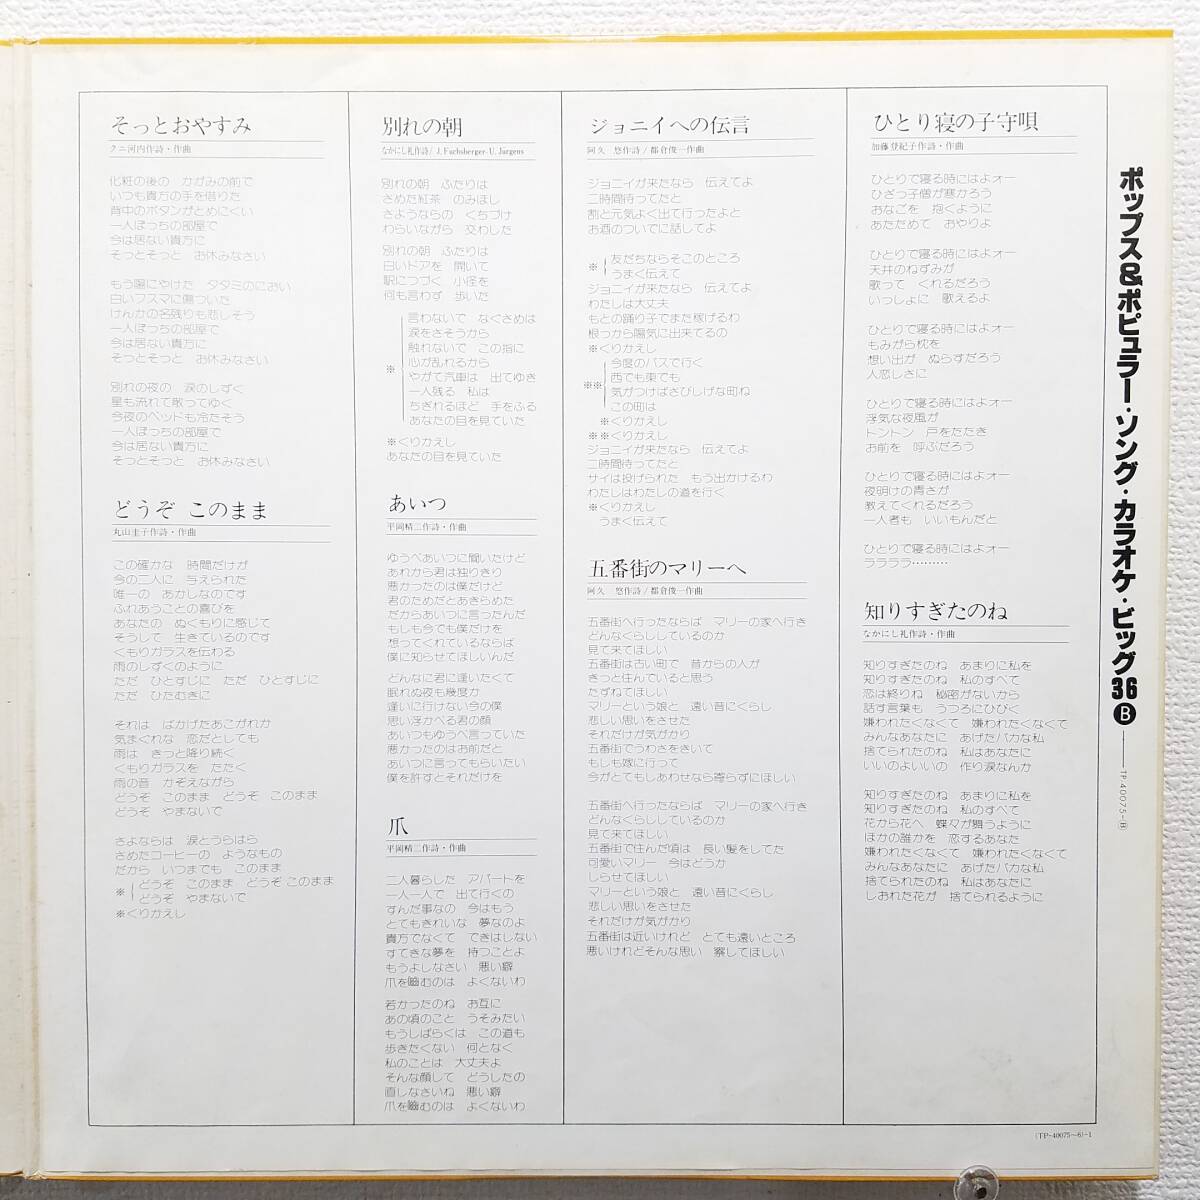 そっとおやすみ
クニ河内作詩・作曲
化粧の後の かがみの前で
いつも貴方の手を借りた
背中のボタンがとめにくい
一人ぼっちの部屋で
今は居ない貴方に
そっとそっと お休みなさい
もう陽にやけた タタミのにおい
白いフスマに傷ついた
けんかの名残りも悲しそう
一人ぼっちの部屋で
今は居ない貴方に
そっとそっと お休みなさい
別れの夜の 涙のしずく
星も流れて散ってゆく
今夜のベッドも冷たそう
一人ぼっちの部屋で
今は居ない貴方に
そっとそっと お休みなさい
どうぞ このまま
丸山圭子作詩・作曲
この確かな 時間だけが
今の二人に 与えられた
唯一の あかしなのです
ふれあうことの喜びを
あなたの ぬくもりに感じて
そうして 生きているのです
くもりガラスを伝わる
雨のしずくのように
ただ ひとすじに ただ ひとすじに
ただ ひたむきに
それは ばかげたあこがれか
気まぐれな 恋だとしても
雨は きっと降り続く
くもりガラスを たたく
雨の音 かぞえながら
どうぞ このまま どうぞ このまま
どうぞ やまないで
さよならは 涙とうらはら
さめたコーヒーの ようなもの
だから いつまでも このまま
※ どうぞ このまま どうぞ このまま
どうぞ やまないで
※くりかえし
別れの朝
なかにし礼作詩/J. Fuchsberger-U. Jürgens
別れの朝 ふたりは
さめた紅茶 のみほし
さようならの くちづけ
わらいながら 交わした
別れの朝 ふたりは
白いドアを 開いて
駅につづく 小径を
何も言わず 歩いた
※ 言わないで なぐさめは
涙をさそうから
触れないで この指に
心が乱れるから
やがて汽車は 出てゆき
一人残る 私は
ちぎれるほど 手をふる
あなたの目を見ていた
※くりかえし
あなたの目を見ていた
あいつ
平岡精二作詩・作曲
ゆうべあいつに聞いたけど
あれから君は独りきり
悪かったのは僕だけど
君のためだとあきらめた
だからあいつに言ったんだ
もしも今でも僕だけを
想ってくれているならば
僕に知らせてほしいんだ
どんなに君に逢いたくて
眠れぬ夜も幾度か
逢いに行けない今の僕
思い浮かべる君の顔
あいつもゆうべ言っていた
悪かったのはお前だと
あいつに言ってもらいたい
僕を許すとそれだけを
爪
平岡精二作詩・作曲
二人暮らした アパートを
一人一人で 出て行くの
すんだ事なの 今はもう
とてもきれいな 夢なのよ
貴方でなくて できはしない
すてきな夢を 持つことよ
もうよしなさい 悪い癖
爪を噛むのは よくないわ
若かったのね お互に
あの頃のこと うそみたい
もうしばらくは この道も
歩きたくない 何となく
私のことは 大丈夫よ
そんな顔して どうしたの
直しなさいね 悪い癖
爪を噛むのは よくないわ
ジョニイへの伝言
阿久 悠作詩/都倉俊一作曲
ジョニイが来たなら 伝えてよ
二時間待ってたと
割と元気よく出て行ったよと
お酒のついでに話してよ
※ 友だちならそこのところ
うまく伝えて
ジョニイが来たなら 伝えてよ
わたしは大丈夫
もとの踊り子でまた稼げるわ
根っから陽気に出来てるの
※くりかえし
※※ 今度のバスで行く
西でも東でも
気がつけばさびしげな町ね
この町は
※くりかえし
※※くりかえし
ジョニイが来たなら 伝えてよ
二時間待ってたと
サイは投げられた もう出かけるわ
わたしはわたしの道を行く
※くりかえし
うまく伝えて
五番街のマリーへ
阿久 悠作詩/都倉俊一作曲
五番街へ行ったならば マリーの家へ行き
どんなくらししているのか
見て来てほしい
五番街は古い町で 昔からの人が
きっと住んでいると思う
たずねてほしい
マリーという娘と 遠い昔にくらし
悲しい思いをさせた
それだけが気がかり
五番街でうわさをきいて
もしも嫁に行って
今がとてもしあわせなら寄らずにほしい
五番街へ行ったならば マリーの家へ行き
どんなくらししているのか
見て来てほしい
五番街で住んだ頃は 長い髪をしてた
可愛いマリー 今はどうか
しらせてほしい
マリーという娘と 遠い昔にくらし
悲しい思いをさせた
それだけが気がかり
五番街は近いけれど とても遠いところ
悪いけれどそんな思い 察してほしい
ひとり寝の子守唄
加藤登紀子作詩・作曲
ひとりで寝る時にはよォー
ひざっ子僧が寒かろう
おなごを 抱くように
あたためて おやりよ
ひとりで寝る時にはよォー
天井のねずみが
歌って くれるだろう
いっしょに 歌えるよ
ひとりで寝る時にはよォー
もみがら枕を
想い出が ぬらすだろう
人恋しさに
ひとりで寝る時にはよォー
浮気な夜風が
トントン 戸をたたき
お前を 呼ぶだろう
ひとりで寝る時にはよォー
夜明けの青さが
教えてくれるだろう
一人者も いいもんだと
ひとりで寝る時にはよォー
ララララ………
知りすぎたのね
なかにし礼作詩・作曲
知りすぎたのね あまりに私を
知りすぎたのね 私のすべて
恋は終りね 秘密がないから
話す言葉も うつろにひびく
嫌われたくなくて 嫌われたくなくて
みんなあなたに あげたバカな私
捨てられたのね 私はあなたに
いいのよいいの 作り涙なんか
知りすぎたのね あまりに私を
知りすぎたのね 私のすべて
花から花へ 蝶々が舞うように
ほかの誰かを 恋するあなた
嫌われたくなくて 嫌われたくなくて
みんなあなたに あげたバカな私
捨てられたのね 私はあなたに
しおれた花が 捨てられるように
ポップス&ポピュラー・ソング・カラオケ・ビッグ36 B
TP-40075-B
(TP-40075~6)-1